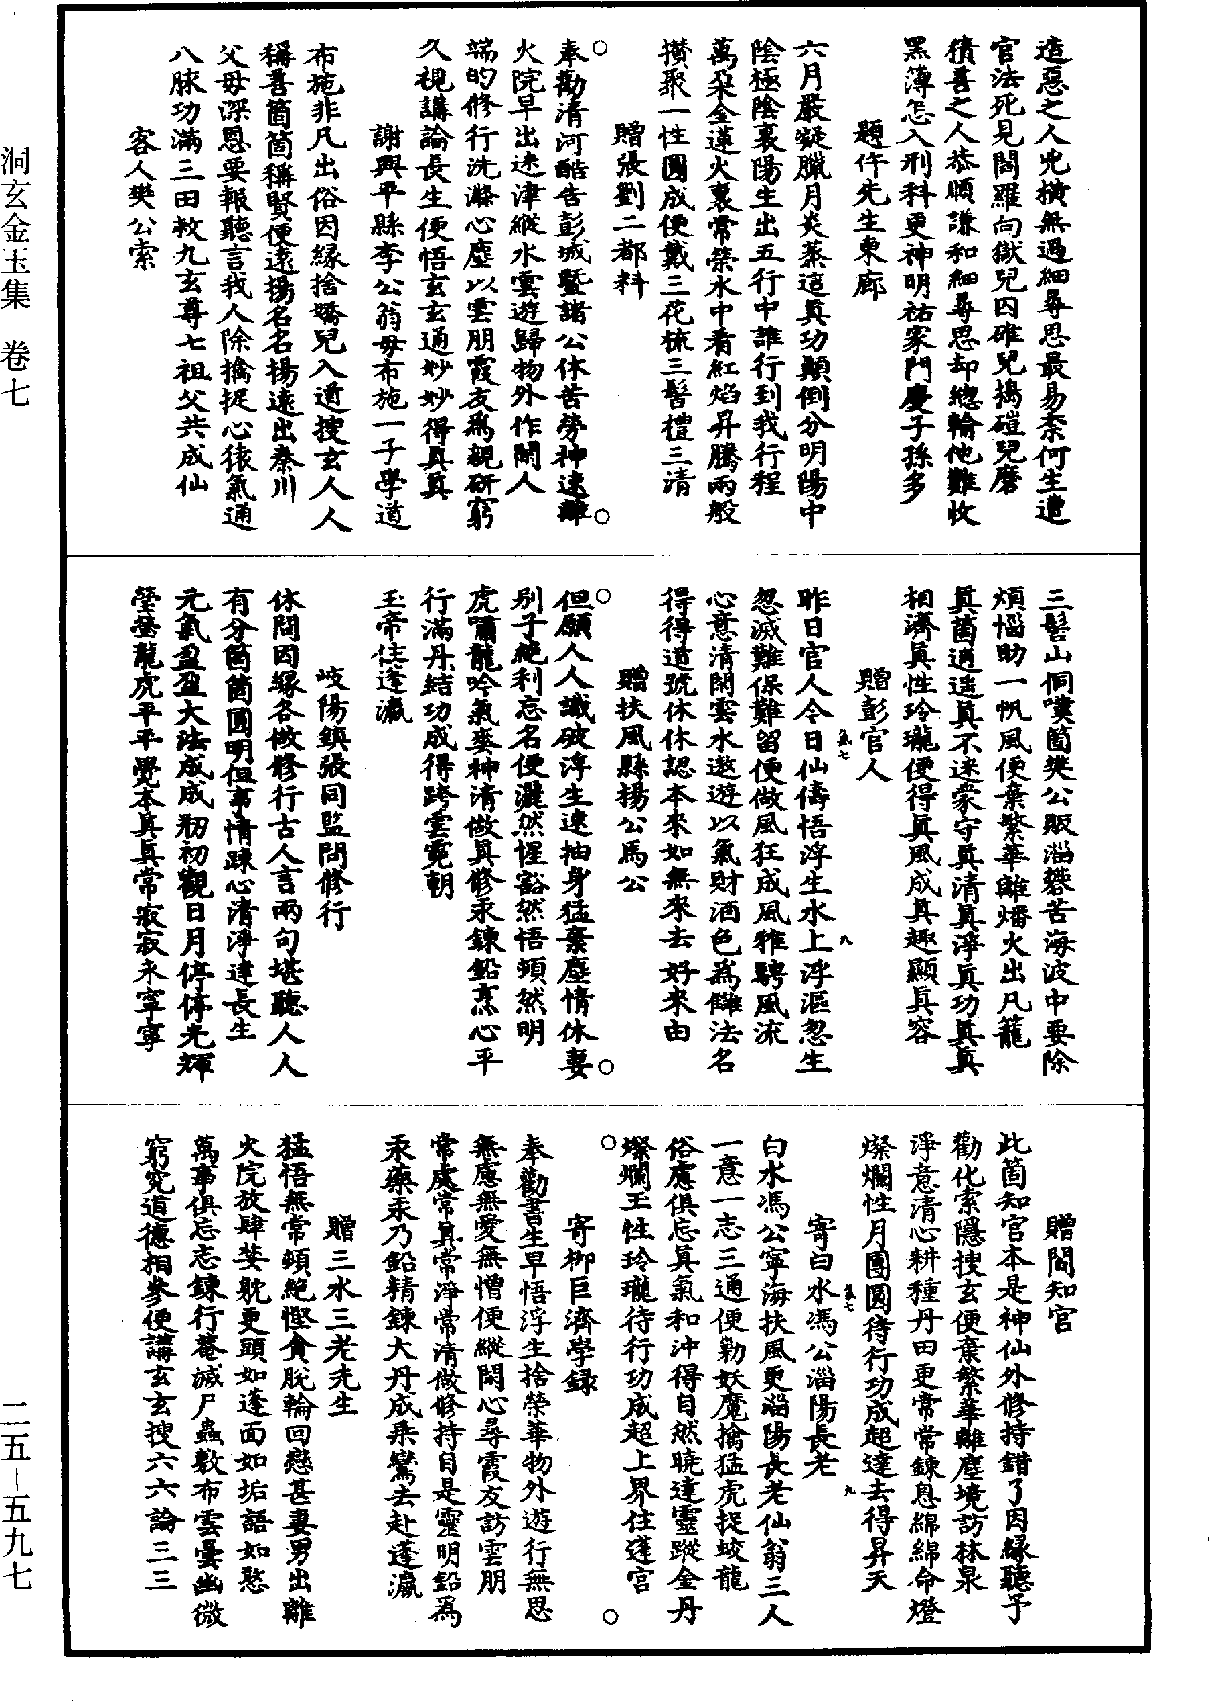 洞玄金玉集　卷七
二五—五九七
造惡之人兇橫無過細尋思最易柰何生遭
官法死見閻羅向獄兒囚碓兒擣磑兒磨
積善之人恭順謙和細尋思却總輸他難收
黑薄怎入刑科更神明祐家門慶子孫多
題仵先生東廊
六月嚴凝臘月炎蒸這眞功顛倒分明陽中
陰極陰裏陽生出五行中誰行到我行程
萬朶金蓮火裏常榮水中看紅焰昇騰兩般
攢聚一性圓成便戴三花梳三髻禮三清
贈張劉二都料
○奉勸清河酷告彭城曁諸公休苦勞神速離○
火院早出迷津縱水雲遊歸物外作閑人
端的修行洗滌心塵以雲朋霞友爲親研窮
久視講論長生便悟玄玄通妙妙得眞眞
謝興平縣李公翁母布施一子學道
布施非凡出俗因緣捨嬌兒入道搜玄人人
稱善箇箇稱賢便遠揚名名揚遠出秦川
父母深恩要報聽言我人除擒捉心猿氣通
八脉功滿三田救九玄尊七祖父共成仙
客人樊公索
三髻山侗嘆箇樊公販淄㯶苦海波中要除
煩惱助一帆風便棄繁華離燔火出凡籠
眞箇逍遥眞不迷蒙守眞清眞淨眞功眞眞
相濟眞性玲瓏便得眞風成眞趣顯眞容
贈彭官人
昨日官人今日仙儔悟浮生水上浮漚忽生
忽滅難保難留便做風狂成風雅騁風流
心意清閑雲水遨遊以氣財酒色爲讎法名
得得道號休休認本來如無來去好來由
贈扶風縣揚公馬公
○但願人人識破浮生速抽身猛棄塵情休妻○
别子絶利忘名便灑然惺豁然悟頓然明
虎嘯龍吟氣麥神清做眞修汞鍊鉛烹心平
行滿丹結功成得跨雲霓朝
玉帝住蓬瀛
岐陽鎮張同監問修行
休問因緣各做修行古人言兩句堪聽人人
有分箇箇圓明但事情踈心清淨達長生
元氣盈盈大法成成初初觀日月停停光輝
瑩瑩龍虎平平覺本眞眞常寂寂永寧寧
贈閻知宫
此箇知宫本是神仙外修持錯了因緣聽予
勸化索隱搜玄便棄繁華離塵境訪林泉
淨意清心耕種丹田更常常鍊息綿綿命燈
燦爛性月團圓待行功成超達去得昇天
寄白水馮公淄陽長老
白水馮公寧海扶風更淄陽長老仙翁三人
一意一志三通便勦妖魔擒猛虎捉蛟龍
俗慮俱忘眞氣和沖得自然曉達靈蹤金丹
○燦爛玉性玲瓏待行功成超上界住蓬宫○
寄柳巨濟學録
奉勸書生早悟浮生捨榮華物外遊行無思
無慮無愛無憎便縱閑心尋霞友訪雲朋
常處常眞常淨常清做修持自是靈明鉛爲
汞藥汞乃鉛精鍊大丹成乘鸞去赴蓬瀛
贈三水三老先生
猛悟無常頓絶慳貪脱輪回戀甚妻男出離
火院放肆婪躭更頭如蓬面如垢語如憨
萬事俱忘忘鍊行菴滅尸蟲敷布雲曇幽微
窮究道德相參便講玄玄搜六六論三三
氣七　九
氣七　九